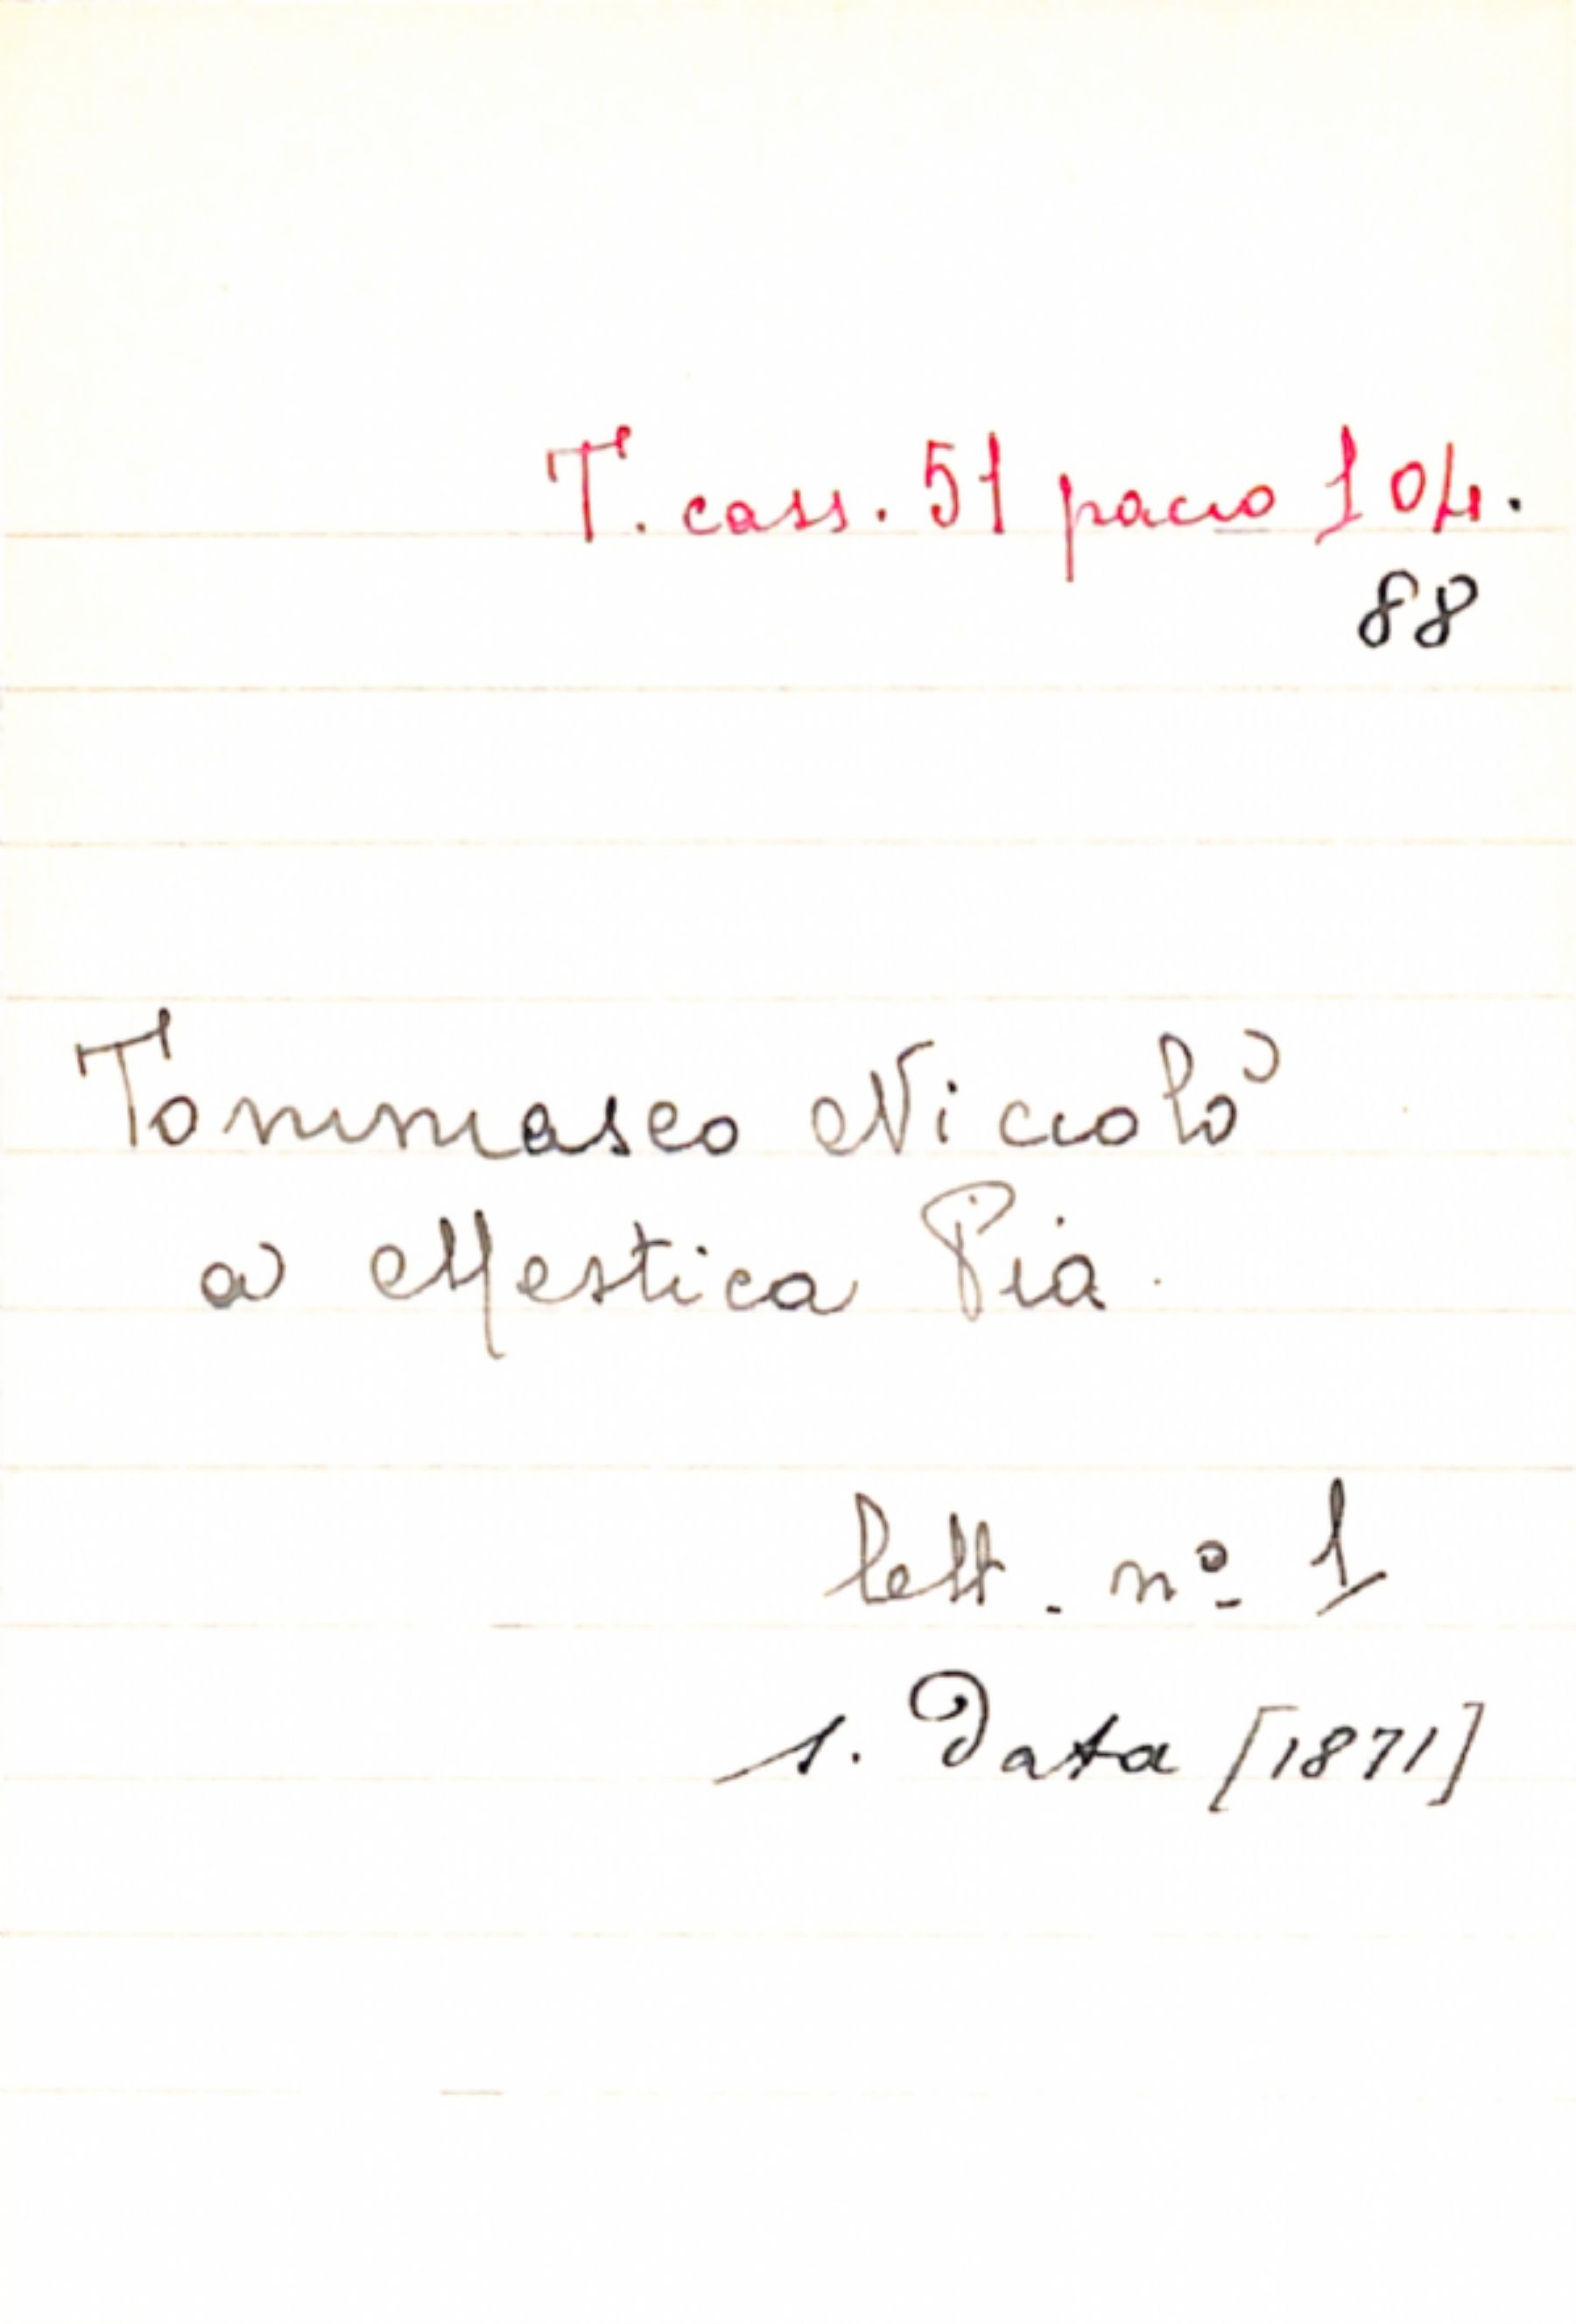 T. cass. 51 pacco 104.
88
Tommaseo Niccolò
a Mestica Pia.
lett. nº 1
s. Data [1871]